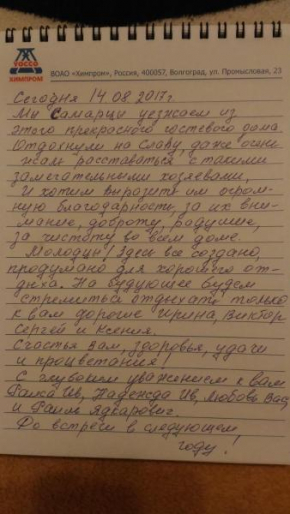 РОССО
ХИМПРОМ
ВОАО «Химпром», Россия, 400057, Волгоград, ул. Промысловая, 23
Сегодня 14.08.2017г.
Мы Самарцы уезжаем из
этого прекрасного гостевого дома
Отдохнули на славу, даже очень
жаль расставаться с такими
замечательными хозяевами.
И хотим выразить им огром-
ную благодарность, за их вни-
мание, доброту, радушие,
за чистоту во всём доме.
Молодцы! Здесь всё создано,
продумано для хорошего от-
дыха. На будующее будем
стремиться отдыхать только
к вам дорогие Ирина, Виктор
Сергей и Ксения.
Счастья Вам, здоровья, удачи
и процветания!
С глубоким уважением к Вам
Ив, Надежда Ив, Любовь Вас,
и
До встречи в следующем
году!